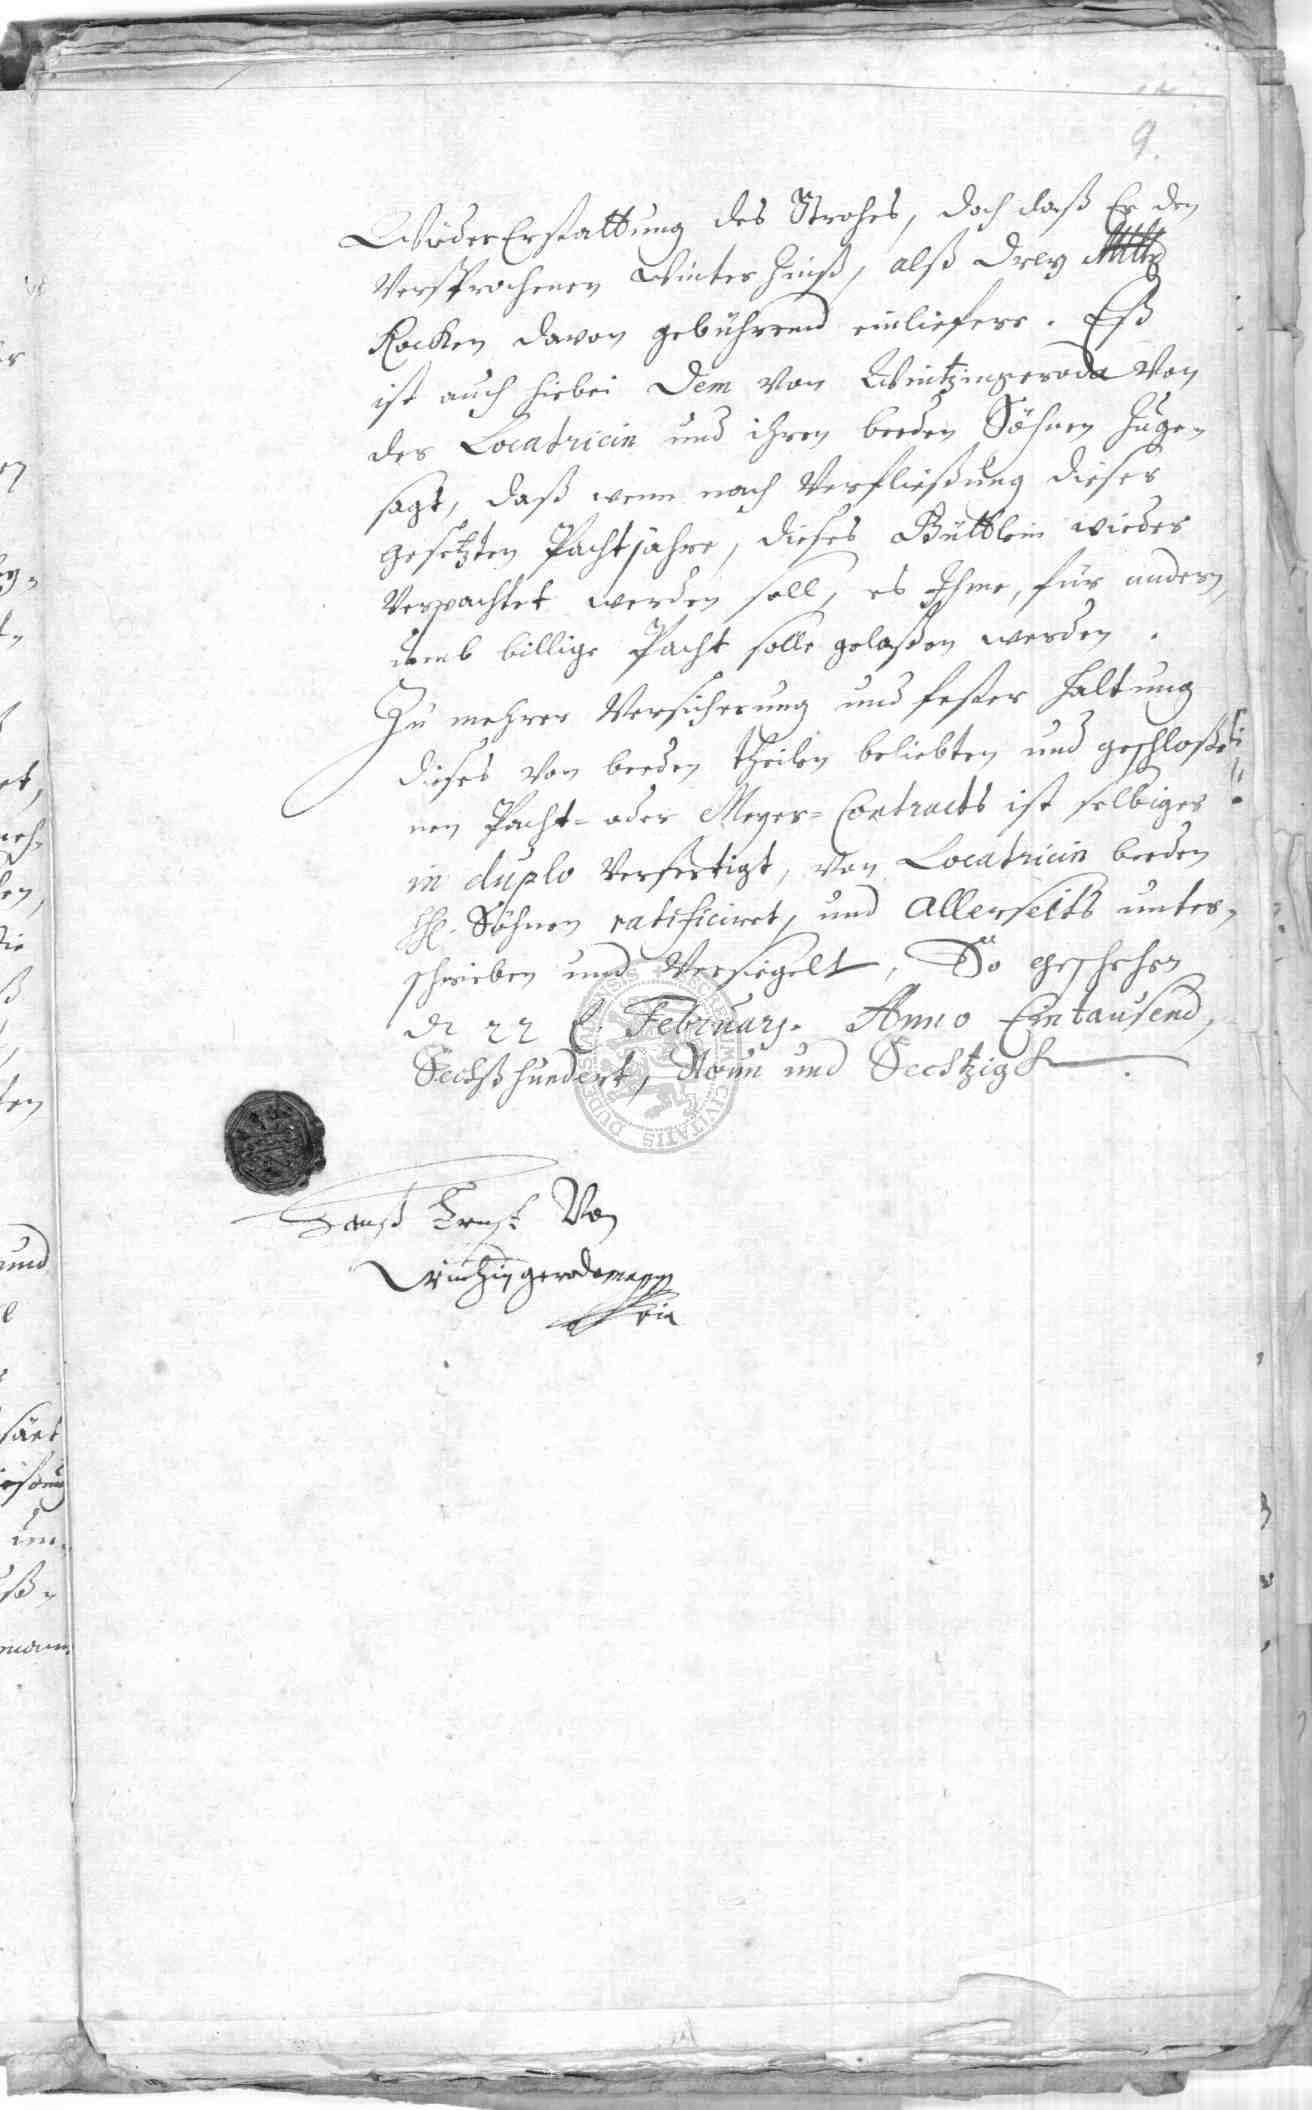 9.
WiederErstattung des Strohes, doch daß Er den
versprochenen Winter Zinß, alß Drey
Rocken davon gebührend einliefere. Eß
ist auch hiebei Dem von Wintzingeroda von
der Locatricin und ihren beeden Söhnen zuge-
sagt, daß wenn nach Verfließung dieser
gesetzten Pachtjahre, dieses Güttlein wieder
verpachtet werden soll, es Ihme, für andern,
umb billige Pacht solle gelaßen werden.
Zu mehrer Versicherung und fester Haltung
dieses von beeden theilen beliebten und geschloße-
nen Pacht- oder Meyer-Contracts ist selbiger
in duplo verfertigt, von Locatricin beeden
HH. Söhnen ratificiret, und allerseits unter-
schrieben und versiegelt, So geschehen
d 22 Februarj. Anno Eintausend,
Sechßhundert, Neun und Sechtzig.
Hanß Ernst Von
Wintzingeroda